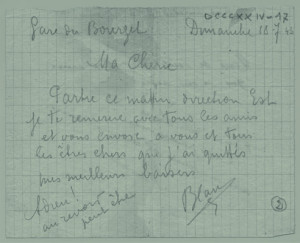 DCCCXXIV-17
Gare du Bourget Dimanche 18 7 43
Ma Cherie
Partie ce matin direction Est
je te remercie avec tous les amis
et vous envoie a vous et tous
les êtres chers que j'ai quittés
mes meilleurs baisers
Adieu!
au revoir
peut être
②